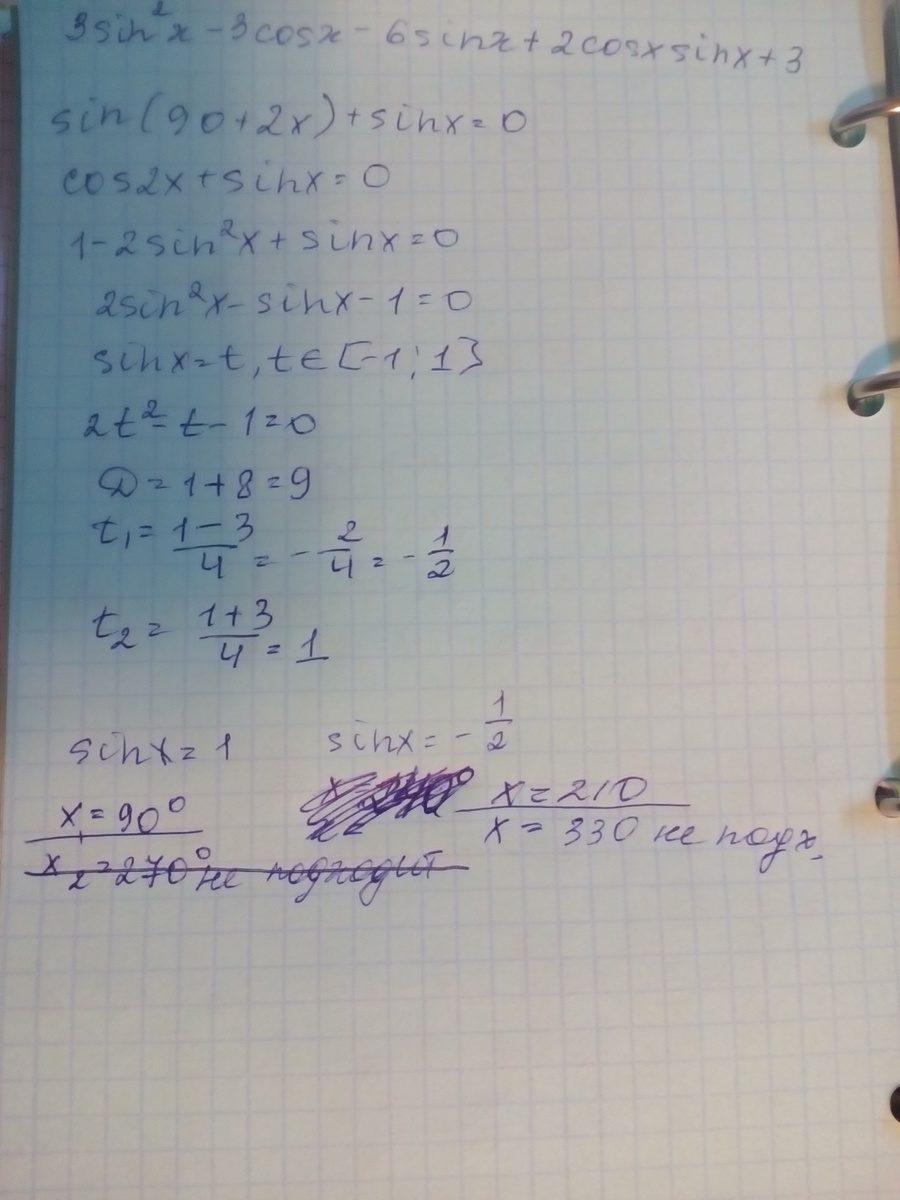 3sin²x - 3cosx - 6sinx + 2cosx sinx + 3
sin(90+2x) + sinx = 0
cos2x + sinx = 0
1 - 2sin²x + sinx = 0
2sin²x - sinx - 1 = 0
sinx = t, t ∈ [-1; 1]
2t² - t - 1 = 0
D = 1 + 8 = 9
t₁ = (1-3)/4 = -2/4 = -1/2
t₂ = (1+3)/4 = 1
sinx = 1 sinx = -1/2
x₁ = 90° x = 210
x = 330 не подх.
x₂ = 270° не подходит